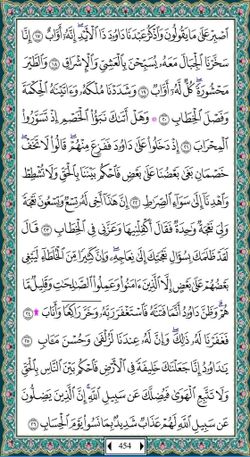 ٱصۡبِرۡ عَلَىٰ مَا يَقُولُونَ وَٱذۡكُرۡ عَبۡدَنَا دَاوُۥدَ ذَا ٱلۡأَيۡدِۖ إِنَّهُۥٓ أَوَّابٌ ١٧ إِنَّا
سَخَّرۡنَا ٱلۡجِبَالَ مَعَهُۥ يُسَبِّحۡنَ بِٱلۡعَشِيِّ وَٱلۡإِشۡرَاقِ ١٨ وَٱلطَّيۡرَ
مَحۡشُورَةٗۖ كُلّٞ لَّهُۥٓ أَوَّابٞ ١٩ وَشَدَدۡنَا مُلۡكَهُۥ وَءَاتَيۡنَٰهُ ٱلۡحِكۡمَةَ
وَفَصۡلَ ٱلۡخِطَابِ ٢٠ ۞ وَهَلۡ أَتَىٰكَ نَبَؤُاْ ٱلۡخَصۡمِ إِذۡ تَسَوَّرُواْ
ٱلۡمِحۡرَابَ ٢١ إِذۡ دَخَلُواْ عَلَىٰ دَاوُۥدَ فَفَزِعَ مِنۡهُمۡۖ قَالُواْ لَا تَخَفۡۖ
خَصۡمَانِ بَغَىٰ بَعۡضُنَا عَلَىٰ بَعۡضٖ فَٱحۡكُم بَيۡنَنَا بِٱلۡحَقِّ وَلَا تُشۡطِطۡ
وَٱهۡدِنَآ إِلَىٰ سَوَآءِ ٱلصِّرَٰطِ ٢٢ إِنَّ هَٰذَآ أَخِي لَهُۥ تِسۡعٞ وَتِسۡعُونَ نَعۡجَةٗ
وَلِيَ نَعۡجَةٞ وَٰحِدَةٞ فَقَالَ أَكۡفِلۡنِيهَا وَعَزَّنِي فِي ٱلۡخِطَابِ ٢٣ قَالَ
لَقَدۡ ظَلَمَكَ بِسُؤَالِ نَعۡجَتِكَ إِلَىٰ نِعَاجِهِۦۖ وَإِنَّ كَثِيرٗا مِّنَ ٱلۡخُلَطَآءِ لَيَبۡغِي
بَعۡضُهُمۡ عَلَىٰ بَعۡضٍ إِلَّا ٱلَّذِينَ ءَامَنُواْ وَعَمِلُواْ ٱلصَّٰلِحَٰتِ وَقَلِيلٞ مَّا
هُمۡۗ وَظَنَّ دَاوُۥدُ أَنَّمَا فَتَنَّٰهُ فَٱسۡتَغۡفَرَ رَبَّهُۥ وَخَرَّۤ رَاكِعٗاۤ وَأَنَابَ ۩ ٢٤
فَغَفَرۡنَا لَهُۥ ذَٰلِكَۖ وَإِنَّ لَهُۥ عِندَنَا لَزُلۡفَىٰ وَحُسۡنَ مَـَٔابٖ ٢٥
يَٰدَاوُۥدُ إِنَّا جَعَلۡنَٰكَ خَلِيفَةٗ فِي ٱلۡأَرۡضِ فَٱحۡكُم بَيۡنَ ٱلنَّاسِ بِٱلۡحَقِّ
وَلَا تَتَّبِعِ ٱلۡهَوَىٰ فَيُضِلَّكَ عَن سَبِيلِ ٱللَّهِۚ إِنَّ ٱلَّذِينَ يَضِلُّونَ
عَن سَبِيلِ ٱللَّهِ لَهُمۡ عَذَابٞ شَدِيدُۢ بِمَا نَسُواْ يَوۡمَ ٱلۡحِسَابِ ٢٦
454